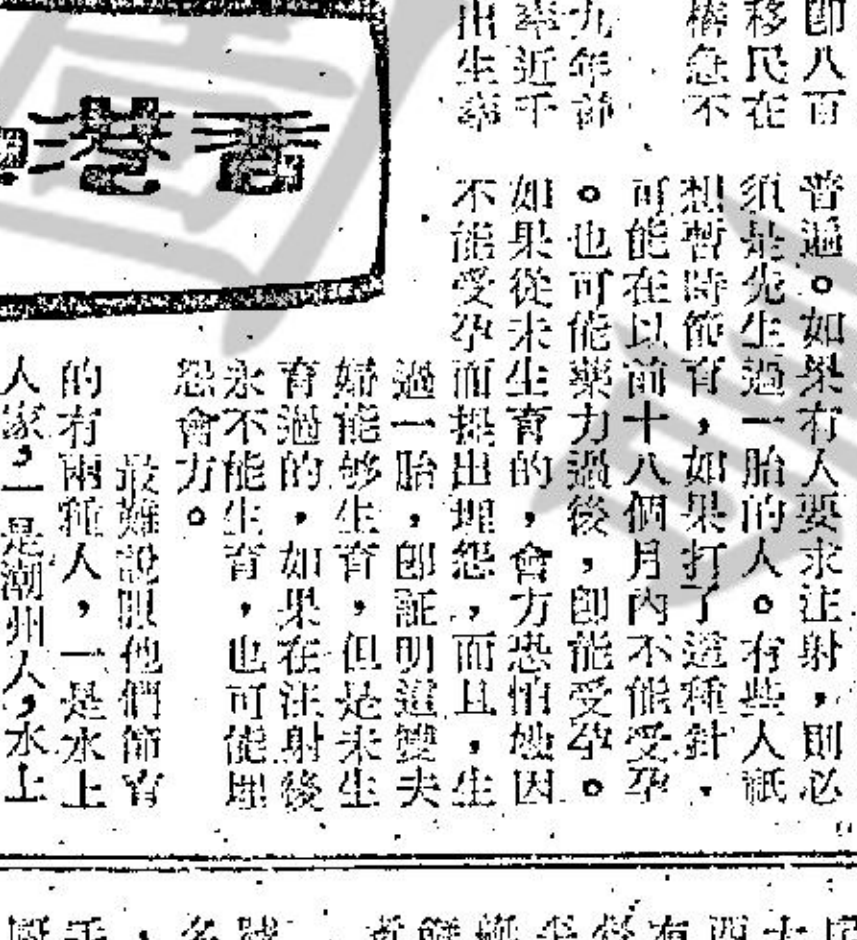 即八百
移民在
樁急不
九年前
率近千
出生率
普遍。如果有人要求注射，則必
須是先生過一胎的人。有些人祇
想暫時節育，如果打了這種針，
可能在以前十八個月內不能受孕
。也可能藥力過後，即能受孕。
如果從未生育的，會方恐怕她因
不能受孕而提出埋怨，而且，生
過一胎，即証明這雙夫
婦能够生育，但是未生
育過的，如果在注射後
永不能生育，也可能埋
怨會方。
最難說服他們節育
的有兩種人，一是水上
人家，一是潮州人，水上
香港